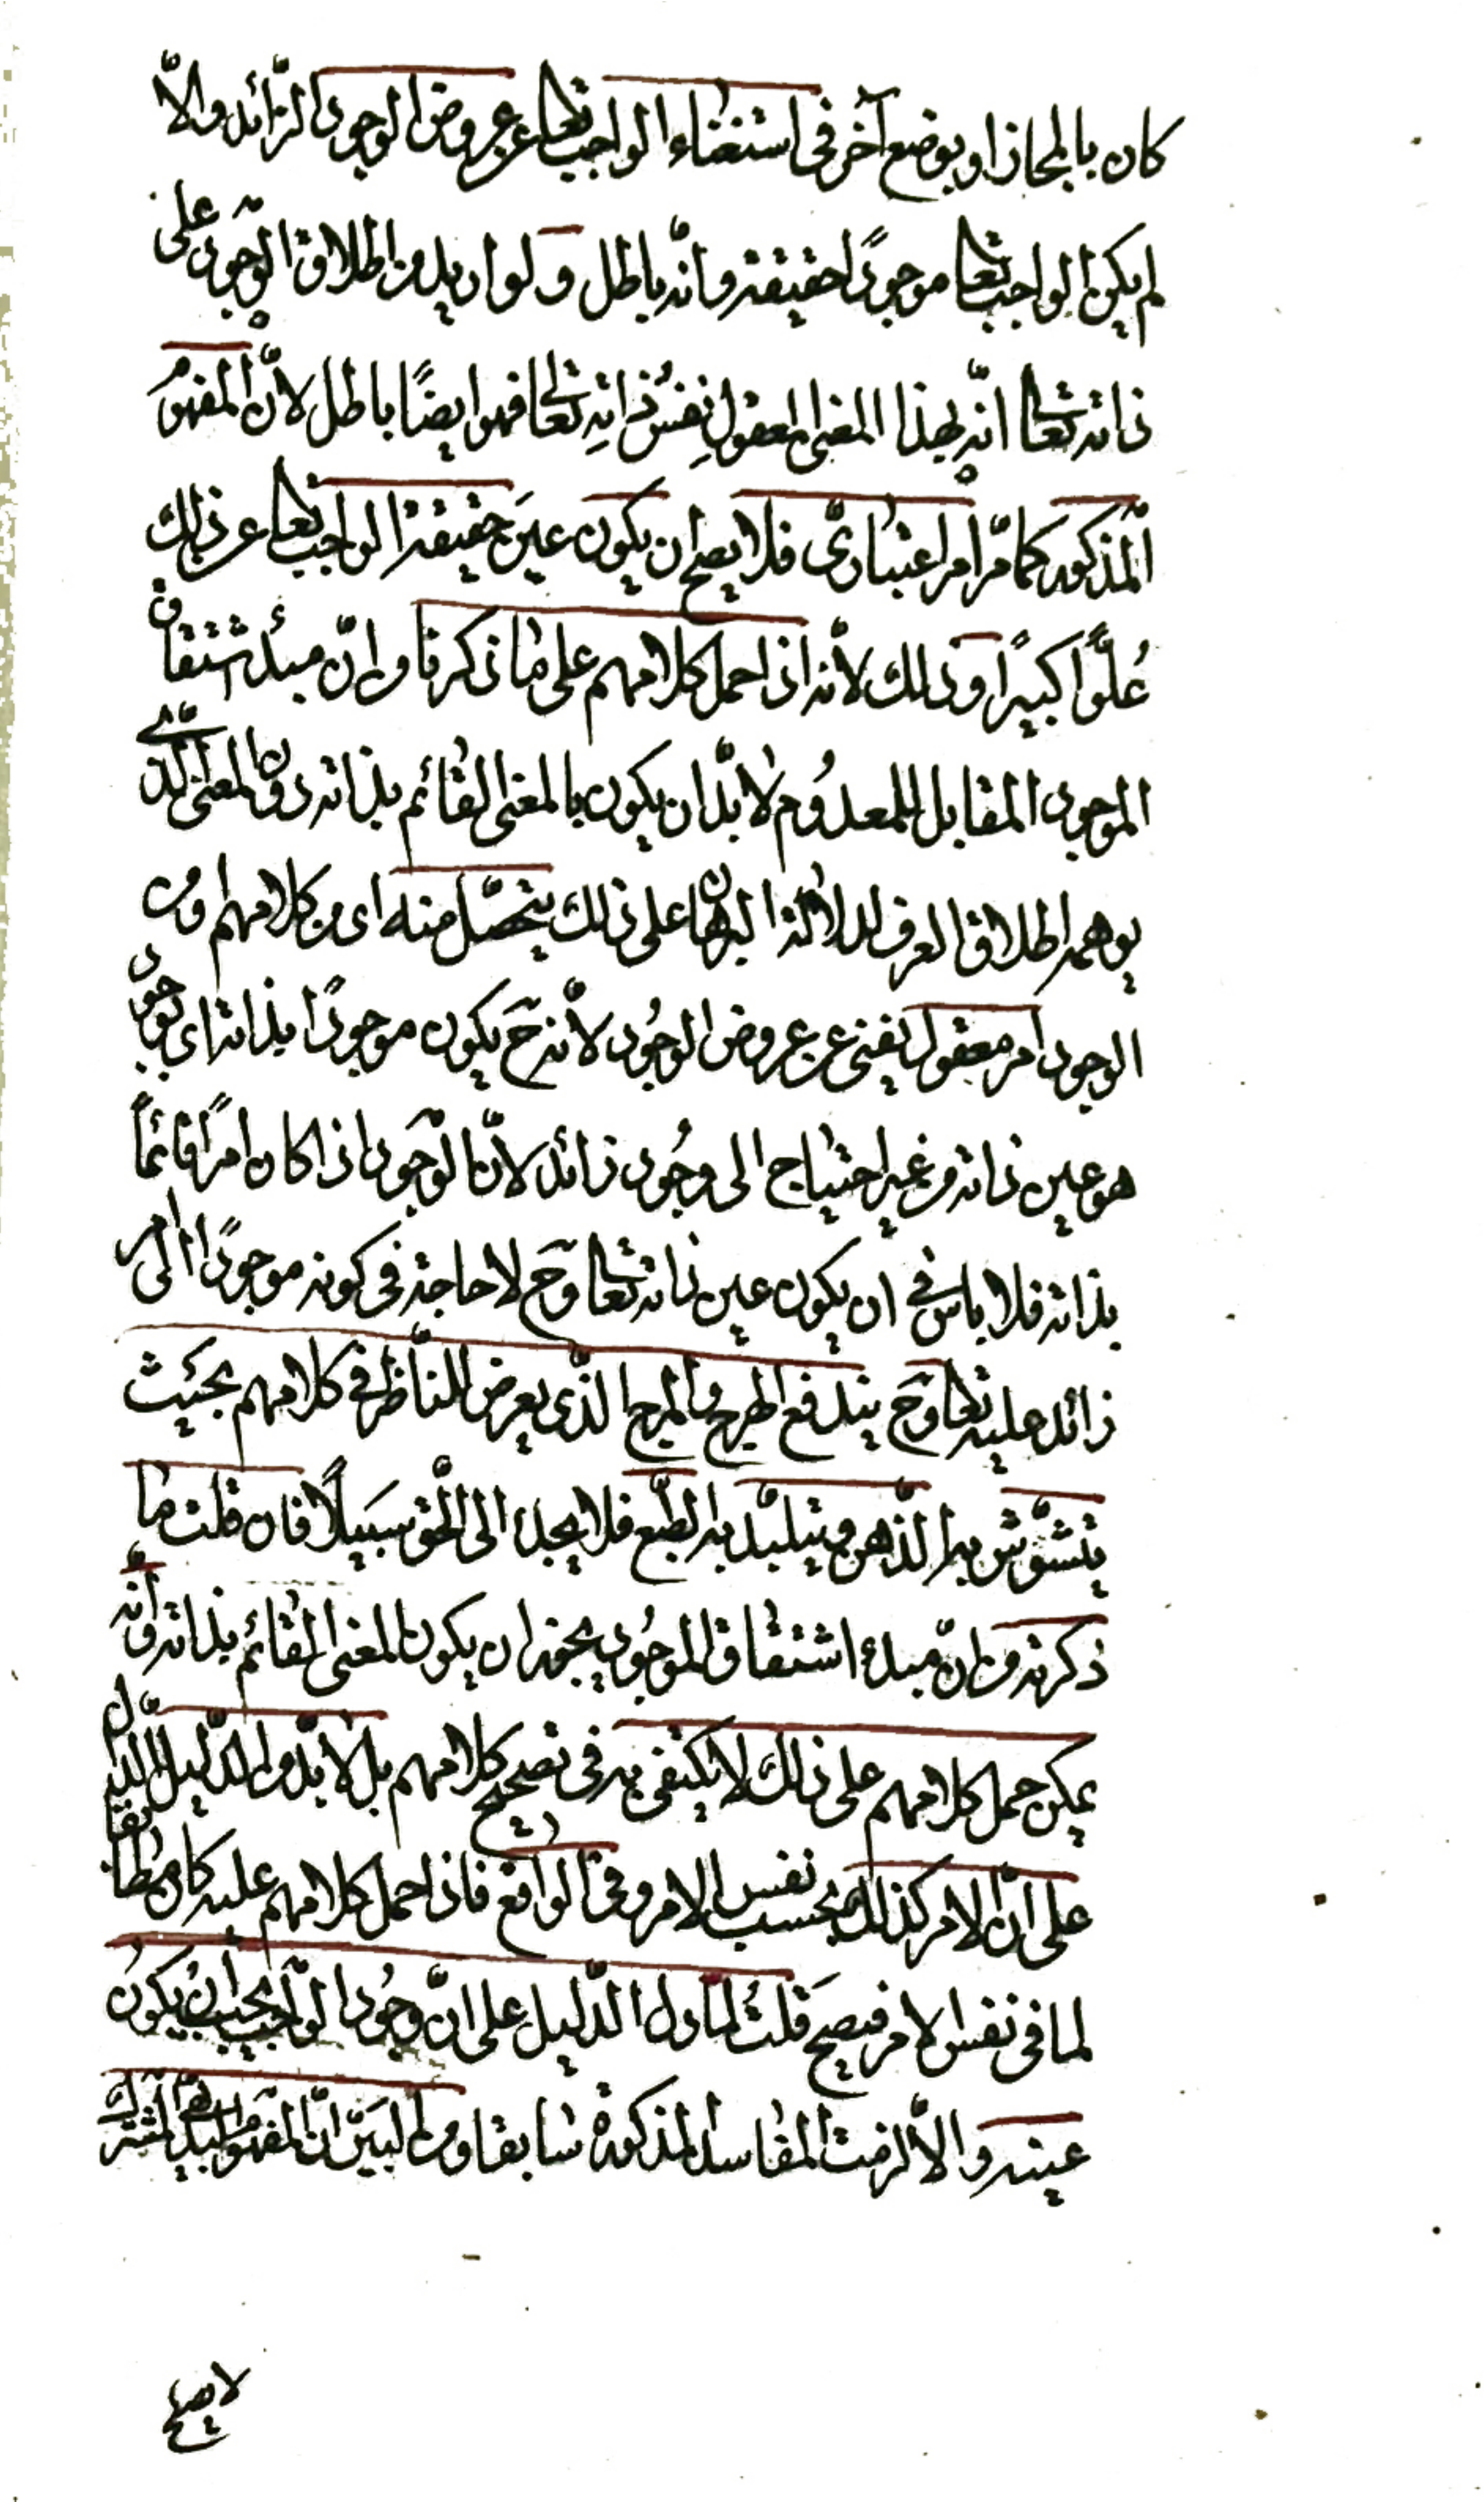 كان بالمجاز او بوضع آخر فى استغناء الواجب تعا عن عروض الوجود الزّائد والّا
لم يكن الواجب تعا موجودًا حقيقة وانّه باطل ولو اريد من اطلاق الوجود على
ذاته تعا انّه بهذا المعنى المعقول نفسُ ذاتِه تعا فهو ايضًا باطل لانّ المفهومُ
المذكور كما مرّ امر اعتبارىّ فلا يصلح ان يكون عينَ حقيقة الواجب تعا عن ذلك
عُلوًّا كبيرًا وذلك لانّه اذا حمل كلامهم على ما ذكرنا من انّ مبدأ اشتقاق
الموجود المقابل للمعدُوم لابدّ ان يكون بالمعنى القائم بذاته دون المعنى الّذى
يوهمه اطلاق العرف لدلالة البرهان على ذلك يتحصّل منه اى من كلامهم ومن
الوجود امر معقول يغنى عن عروض الوجُود لانّه ح يكون موجودًا بذاته اى بوجود
هو عين ذاته من غير احتياج الى وجُود زائد لانّ الوجود اذا كان امرًا قائمًا
بذاته فلا باس فى ان يكون عين ذاته تعا وح لا حاجة فى كونه موجودًا الى امر
زائد عليه تعا وح يندفع الهرج والمرج الّذى يعرض للنّاظر فى كلامهم بحيث
يتشوّش به الذّهن ويتبلّد به الطّبع فلا يجد الى الحق سَبيلًا فان قلت ما
ذكرته من انّ مبدء اشتقاق الموجُود يجوز ان يكون المعنى القائم بذاته وانّه
يمكن حمل كلامهم على ذلك لا يكتفى به فى تصحيح كلامهم بل لابدّ من الدّليل الدّال
على انّ الامر كذلك بحسب نفس الامر وفى الواقع فاذا حمل كلامهم عليه كان مطابقا
لما فى نفس الامر فيصحّ قلتُ لمّا دل الدّليل على انّ وجُود الواجب يجب ان يكونُ
عينه والّا لزمت المفاسد المذكورة سابقا ومن البيّن انّ المفهوم البديهىّ المشترك
لا يصلح